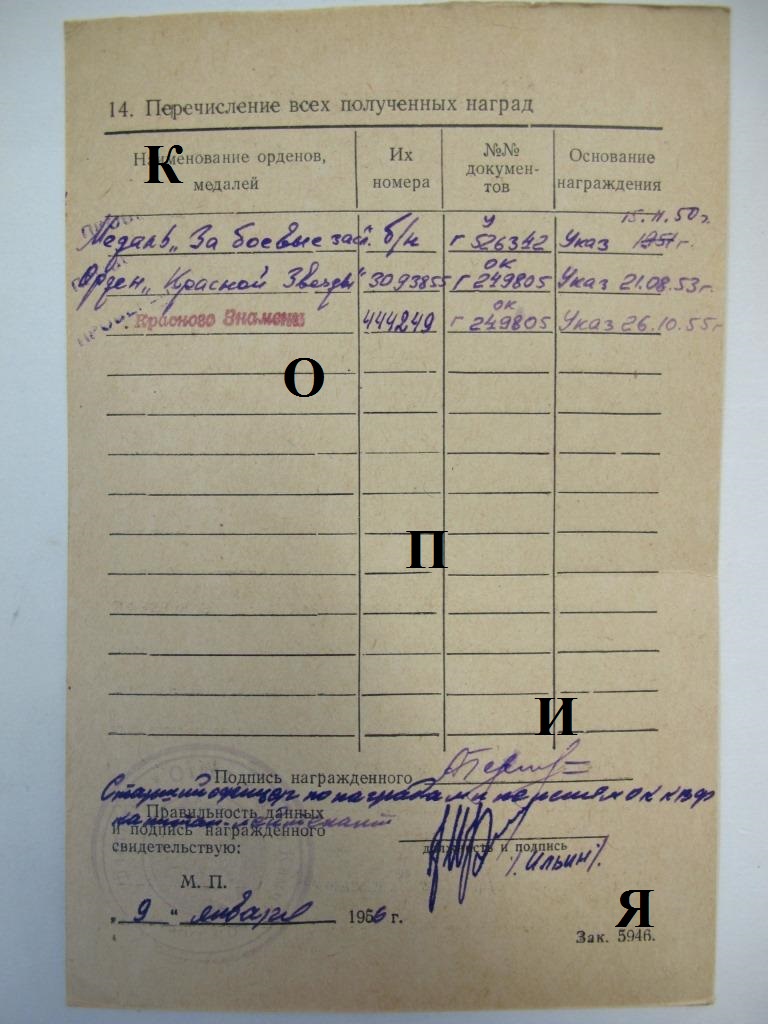 14. Перечисление всех полученных наград
Наименование орденов, медалей
Их номера
№№ документов
Основание награждения
К
15.11.50г.
Медаль „За боевые засл. б/н У г 526342 Указ 1951г.
Орден „Красной Звезды" 3093855 ОК г 249805 Указ 21.08.53г.
Красного Знамени 444249 ОК г 249805 Указ 26.10.55г
О
П
И
Подпись награжденного
Старший офицер по наградам
капитан-лейтенант
Правильность данных
и подпись награжденного
свидетельствую:
должность и подпись
/Ильин/.
М. П.
„ 9 " января 1956 г.
Я
Зак. 5946.